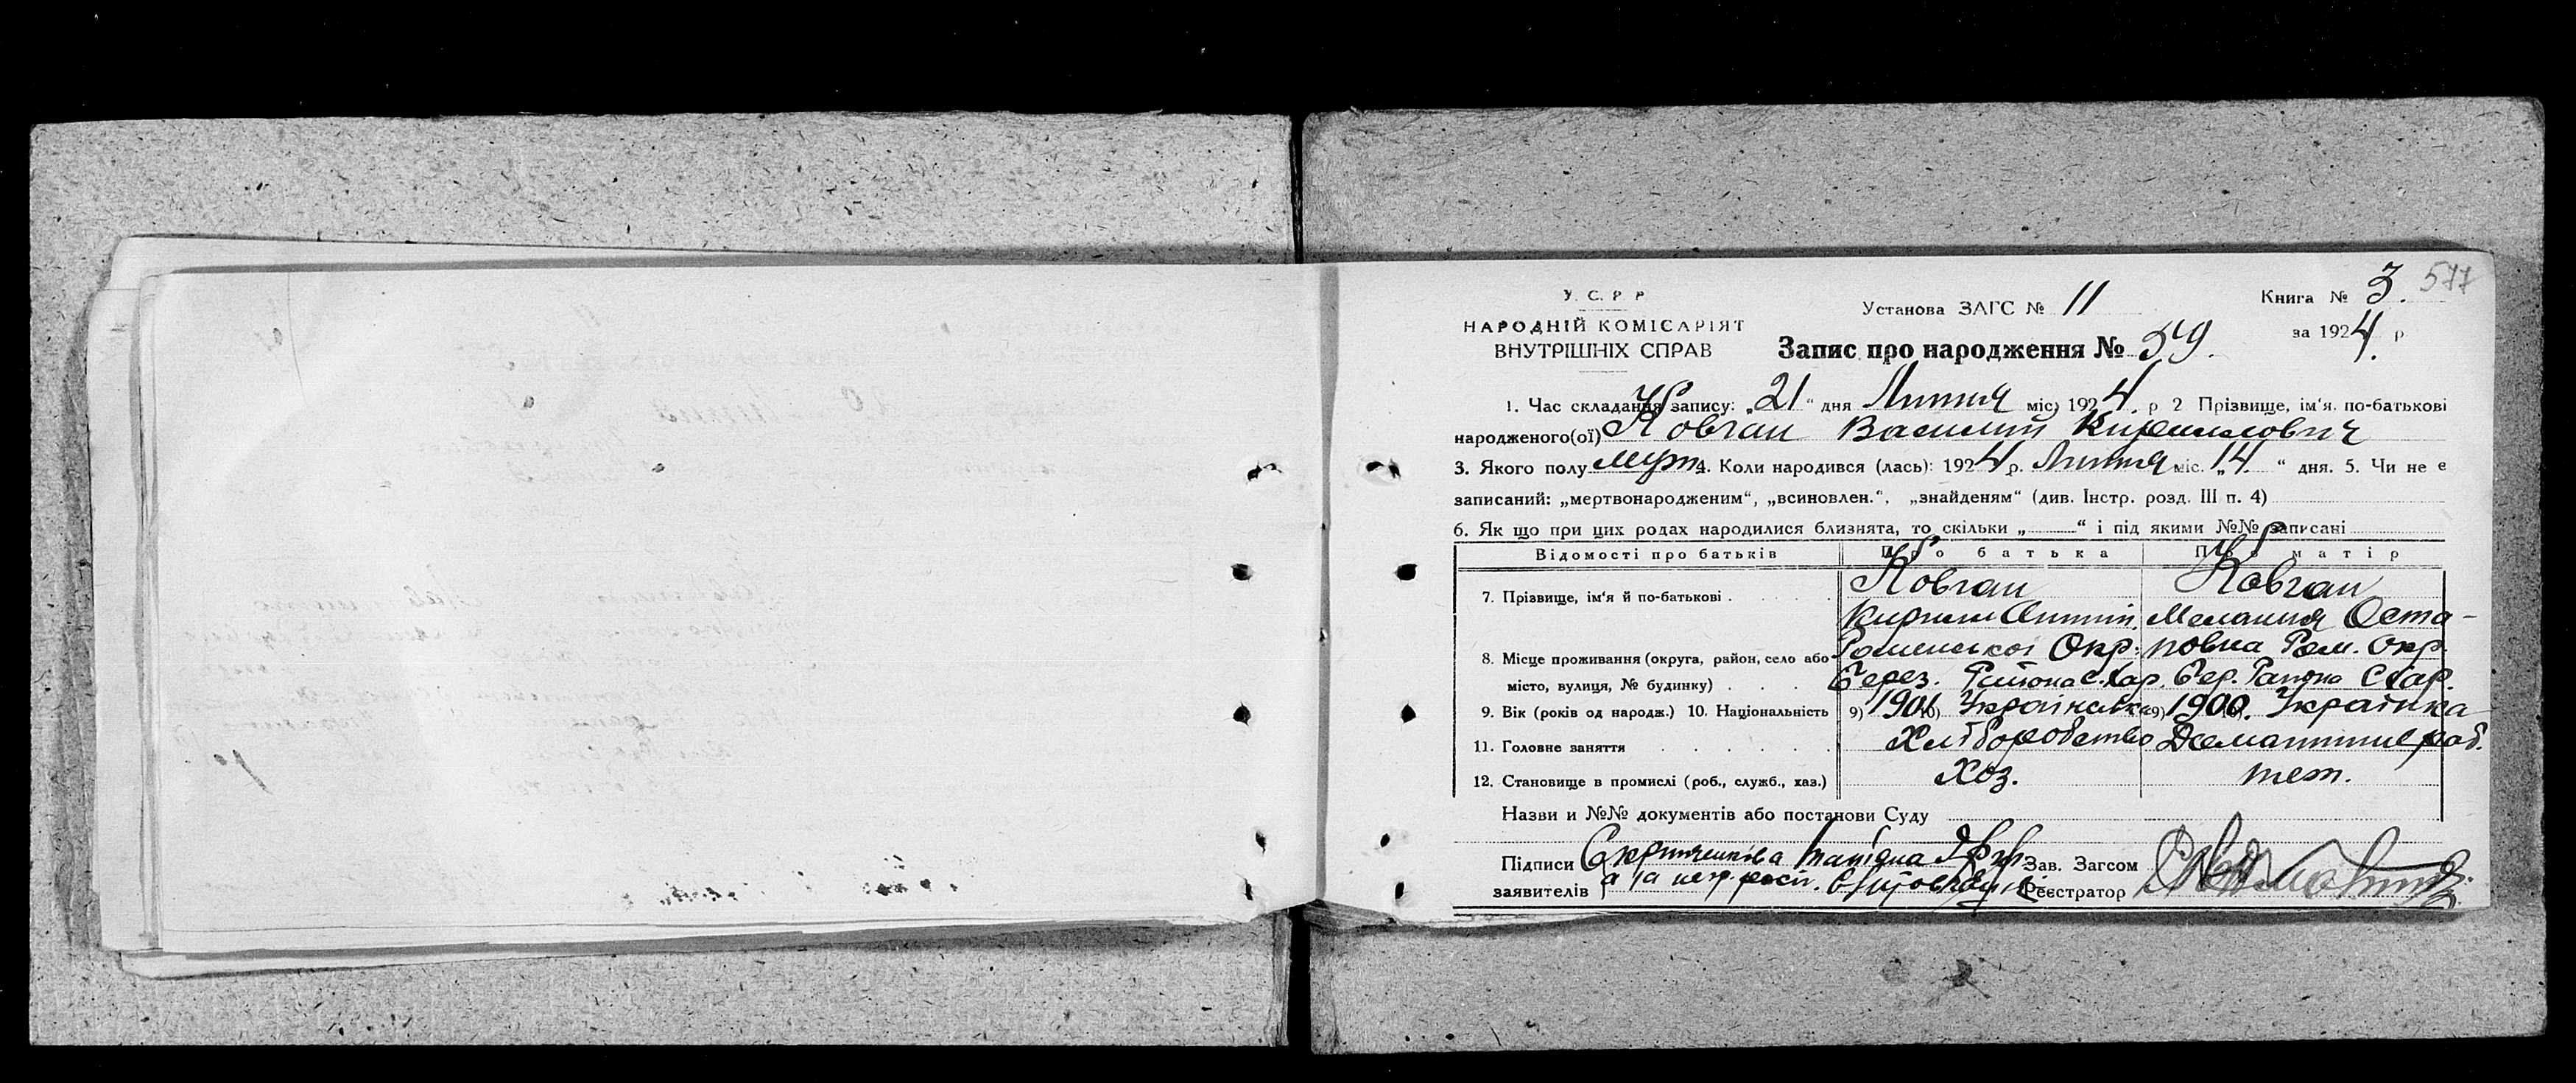 577
У. С. Р. Р.
НАРОДНІЙ КОМІСАРІЯТ
ВНУТРІШНІХ СПРАВ
Установа ЗАГС № 11
Книга № 3.
за 1924 р.
Запис про народження № 59.
1. Час складання запису: „21“ дня Липня міс) 1924 р 2 Прізвище, ім‘я. по-батькові
народженого(ої) Ковган Василий Кирилович
3. Якого полу муж 4. Коли народився (лась): 1924 р. Липня міс. „14“ дня. 5. Чи не є
записаний: „мертвонародженим“, „всиновлен.“, „знайденям“ (див. Інстр. розд. III п. 4)
6. Як що при цих родах народилися близнята, то скільки „ “ і під якими №№ записані
Відомості про батьків Про батька Про матір
7. Прізвище, ім‘я й по-батькові . Ковган Ковган
Кирило Мелания Оста-
8. Місце проживання (округа, район, село або Роменської Окр. повна Ром. Окр.
місто, вулиця, № будинку) . Берез. Района с. Хар. Бер. Района С Хар.
9. Вік (років од народж.) 10. Національність 9) 1901 10) 9) 1900. Українка
11. Головне заняття Хліборобство Домашнне раб.
12. Становище в промислі (роб., служб., хаз.) Хоз. теж.
Назви и №№ документів або постанови Суду
Підписи Зав. Загсом
заявителів Реєстратор